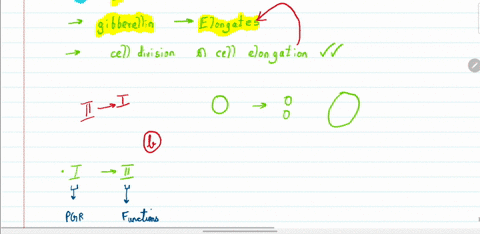 → gibberellin → Elongates
→ cell division & cell elongation ✓✓
II → I
b
· I → II
PGR Functions